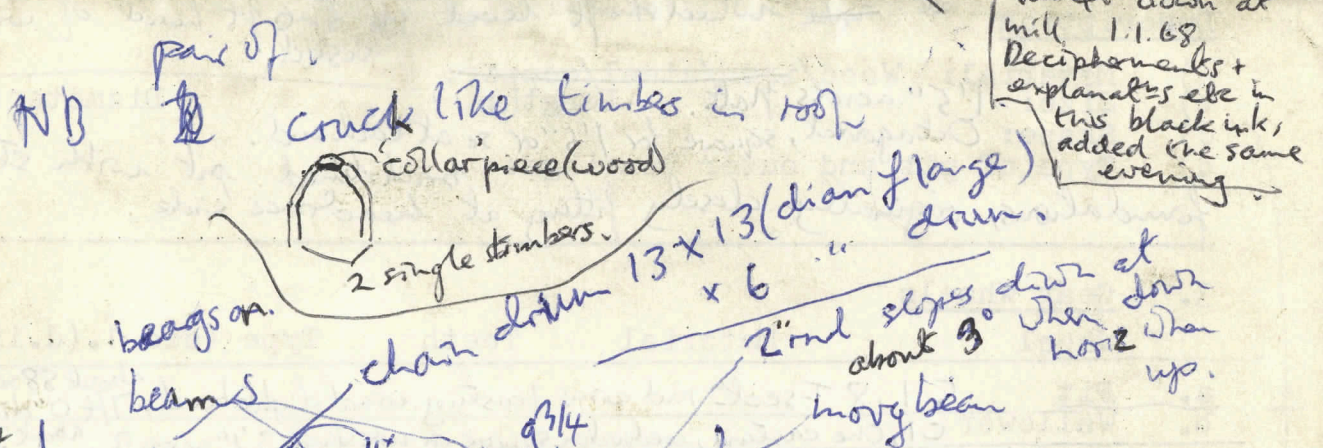 down at
mill 1.1.68
Decipherments +
explanat⁠ns etc in
this black ink,
added the same
evening.
pair of
NB cruck like timbers in roof
collar piece (wood)
2 single timbers.
chain drum 13 x 13 (diam flange)
x 6 " drum.
2" rod slopes down at
about 3° when down
horiz when
up.
beams
movg beam
9 3/4